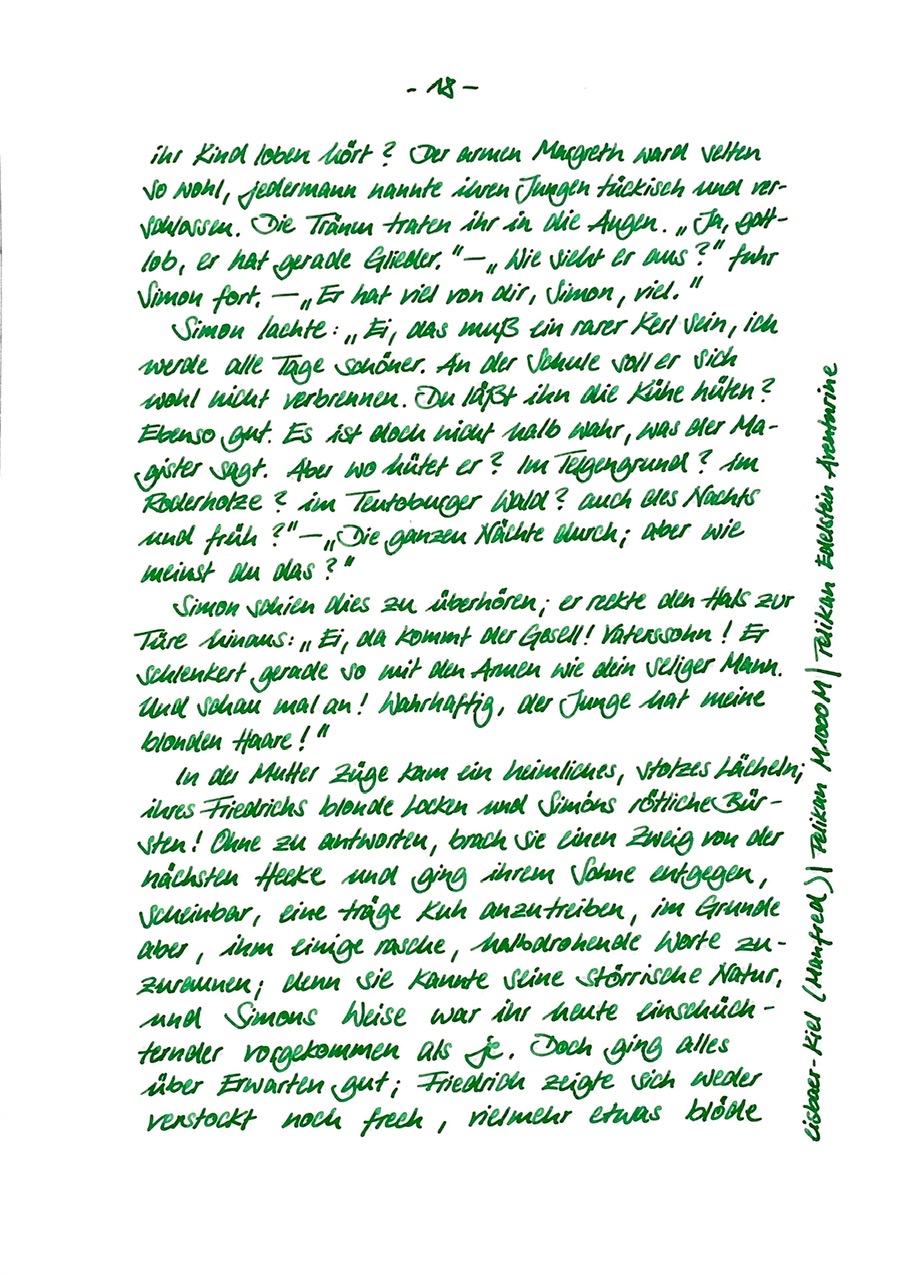 - 18 -
ihr Kind loben hört? Der armen Margreth ward selten
so wohl, jedermann nannte ihren Jungen tückisch und ver-
schlossen. Die Tränen traten ihr in die Augen. „Ja, gott-
lob, er hat gerade Glieder." — „Wie sieht er aus?" fuhr
Simon fort. — „Er hat viel von dir, Simon, viel."
Simon lachte: „Ei, das muß ein rarer Kerl sein, ich
werde alle Tage schöner. An der Schule soll er sich
wohl nicht verbrennen. Du läßt ihn die Kühe hüten?
Ebenso gut. Es ist doch nicht halb wahr, was der Ma-
gister sagt. Aber wo hütet er? Im Telgengrund? im
Roderholze? im Teutoburger Wald? auch des Nachts
und früh?" — „Die ganzen Nächte durch; aber wie
meinst du das?"
Simon schien dies zu überhören; er reckte den Hals zur
Türe hinaus: „Ei, da kommt der Gesell! Vaterssohn! Er
schlenkert gerade so mit den Armen wie dein seliger Mann.
Und schau mal an! Wahrhaftig, der Junge hat meine
blonden Haare!"
In der Mutter Züge kam ein heimliches, stolzes Lächeln;
ihres Friedrichs blonde Locken und Simons rötliche Bür-
sten! Ohne zu antworten, brach sie einen Zweig von der
nächsten Hecke und ging ihrem Sohne entgegen,
scheinbar, eine träge Kuh anzutreiben, im Grunde
aber, ihm einige rasche, halbdrohende Worte zu-
zuraunen; denn sie kannte seine störrische Natur,
und Simons Weise war ihr heute einschüch-
ternder vorgekommen als je. Doch ging alles
über Erwarten gut; Friedrich zeigte sich weder
verstockt noch frech, vielmehr etwas blöde
Eisbaer-Kiel (Manfred) | Pelikan M1000 M | Pelikan Edelstein Aventurine